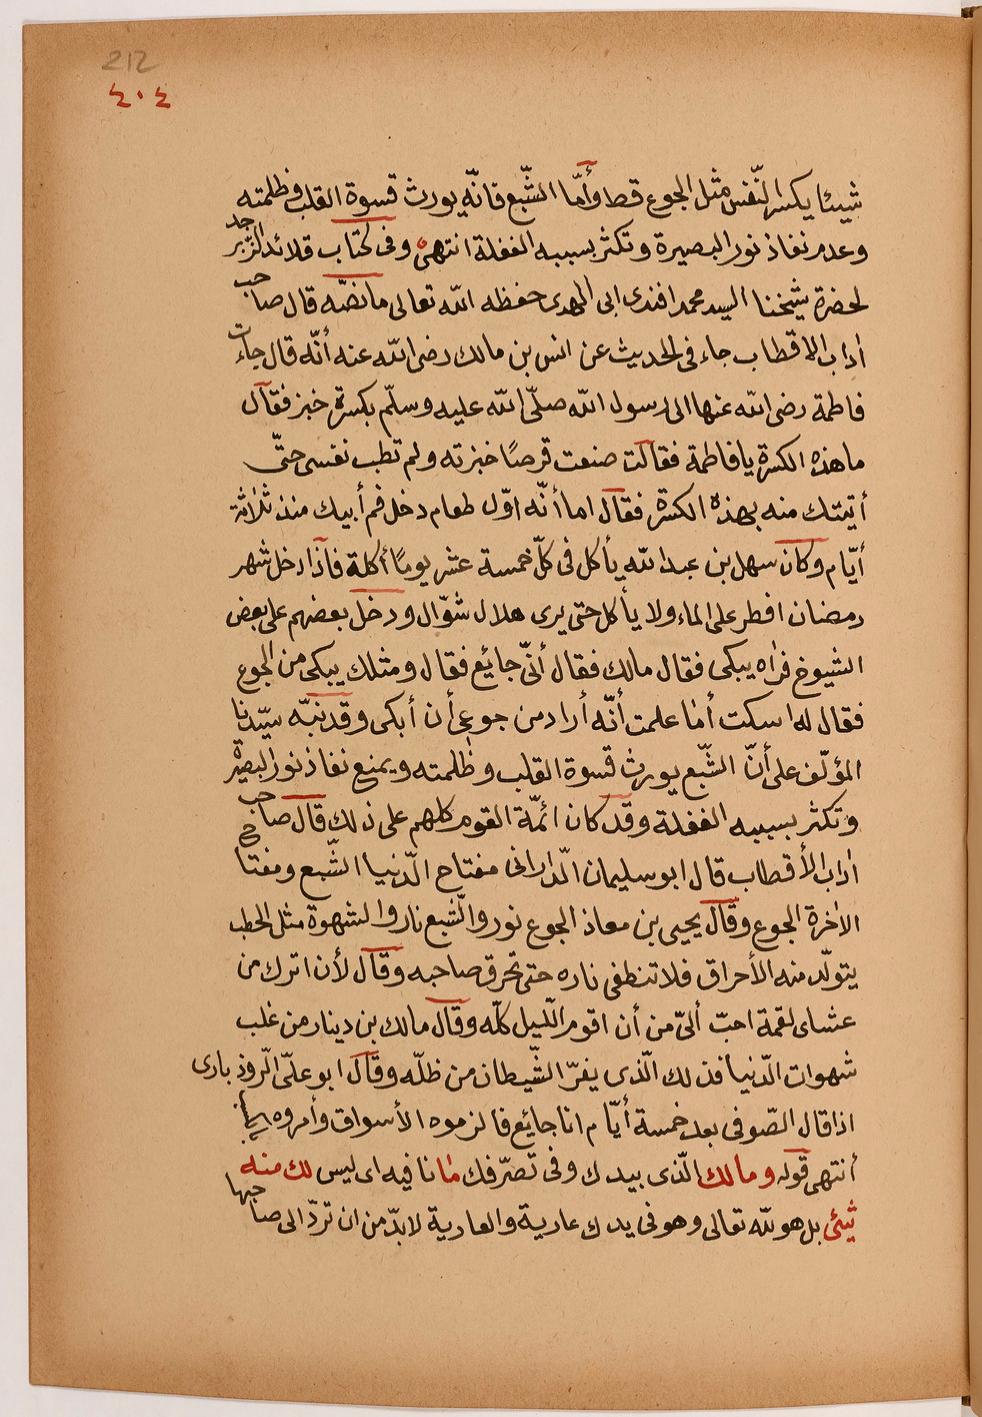 212
٤٠٤
شيئا يكسر النّفس مثل الجوع قط وأمّا الشّبع فانّه يورث قسوة القلب وظلمته
وعدم نفاذ نور البصيرة وتكثر بسببه الغفلة انتهى وفى كتاب قلائد الزّبرجد
لحضرة شيخنا السيد محمد افندى ابى الهدى حفظه الله تعالى ما نصّه قال صاحب
اداب الاقطاب جاء فى الحديث عن انس بن مالك رضى الله عنه أنّه قال جاءت
فاطمة رضى الله عنها الى رسول الله صلّى الله عليه وسلّم بكسرة خبز فقال
ما هذه الكسرة يا فاطمة فقالت صنعت قرصًا خبزته ولم تطب نفسى حتّى
أتيتك منه بهذه الكسرة فقال اما أنّه اوّل طعام دخل فم أبيك منذ ثلاثة
أيّام وكان سهل بن عبد الله يأكل فى كلّ خمسة عشر يومًا أكلة فاذا دخل شهر
رمضان افطر على الماء ولا يأكل حتى يرى هلال شوّال ودخل بعضهم على بعض
الشيوخ فراه يبكى فقال مالك فقال أنّى جايع فقال ومثلك يبكى من الجوع
فقال له اسكت أما علمت أنّه أراد من جوعى أن أبكى وقد نبّه سيّدنا
المؤلّف على أنّ الشّبع يورث قسوة القلب وظلمته ويمنع نفاذ نور البصيرة
وتكثر بسببه الغفلة وقد كان ائمّة القوم كلهم على ذلك قال صاحب
اداب الأقطاب قال ابو سليمان الدّارانى مفتاح الدّنيا الشّبع ومفتاح
الاخرة الجوع وقال يحيى بن معاذ الجوع نور والشّبع نار والشهوة مثل الحطب
يتولّد منه الأحراق فلا تنطفى ناره حتى تحرق صاحبه وقال لأن اترك من
عشاى لقمة احبّ ألىّ من أن اقوم اللّيل كلّه وقال مالك بن دينار من غلب
شهوات الدّنيا فذلك الّذى يفرّ الشّيطان من ظلّه وقال ابو علىّ الرّوذ بارى
اذا قال الصّوفى بعد خمسة أيّام انا جايع فالزموه الأسواق وأمروه
أنتهى قوله ومالك الّذى بيدك وفى تصرّفك مانا فيه اى ليس لك منه
شئ بل هو لله تعالى وهو فى يدك عارية والعارية لابدّ من ان تردّ الى صاحبها